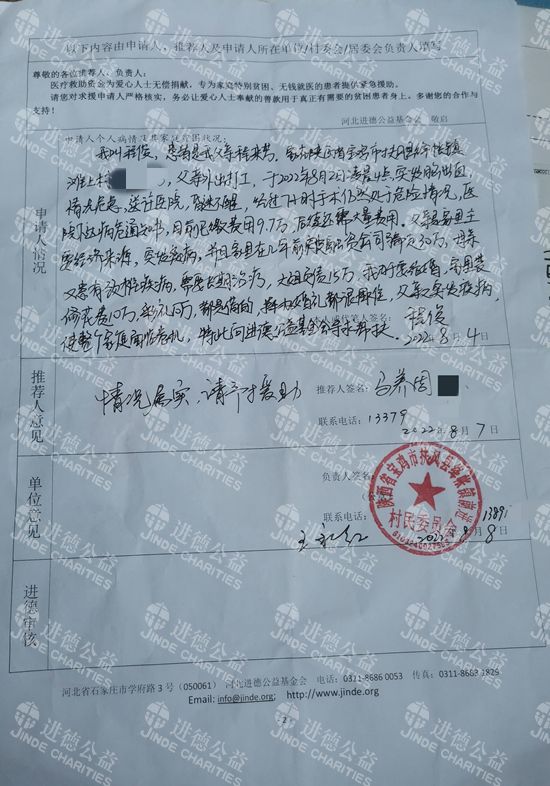 以下内容由申请人、推荐人及申请人所在单位/村委会/居委会负责人填写
尊敬的各位推荐人、负责人：
医疗救助资金为爱心人士无偿捐献，专为家庭特别贫困、无钱就医的患者提供紧急援助。
请您对求援申请人严格核实，务必让爱心人士奉献的善款用于真正有需要的贫困患者身上。多谢您的合作与
支持！
河北进德公益基金会 敬启
申请人情况
申请人个人病情及其家庭贫困状况：
我叫程俊，患者是我父亲程来劳，家在陕西省宝鸡市扶风县绛帐镇
滩上村 父亲外出打工，于2022年8月2日凌晨1点突发脑出血
情况危急，送往医院，昏迷不醒，经过7小时手术仍然处于危险情况，医
院下达病危通知书，目前已缴费用9.7万，后续还需大量费用。父亲是家里主
要经济来源，突发疾病，并且家里在几年前
又患有 疾病，需要长期治疗，
修花费10万，彩礼10万，都是借的 父亲突发疾病，
使整个家庭面临危机，特此向进德公益基金会寻求帮扶。
程俊
2022年8月4日
推荐人意见
情况属实，请予以援助
推荐人签名：
联系电话：13379
2022年8月7日
单位意见
负责人签名：
联系电话：13891
陕西省宝鸡市扶风县绛帐镇
村民委员会
2022年8月8日
进德审核
河北省石家庄市学府路3号（050061） 河北进德公益基金会 电话：0311-8686 0053 传真：0311-8663 1829
Email: info@jinde.org; http://www.jinde.org
2
进德公益
JINDE CHARITIES